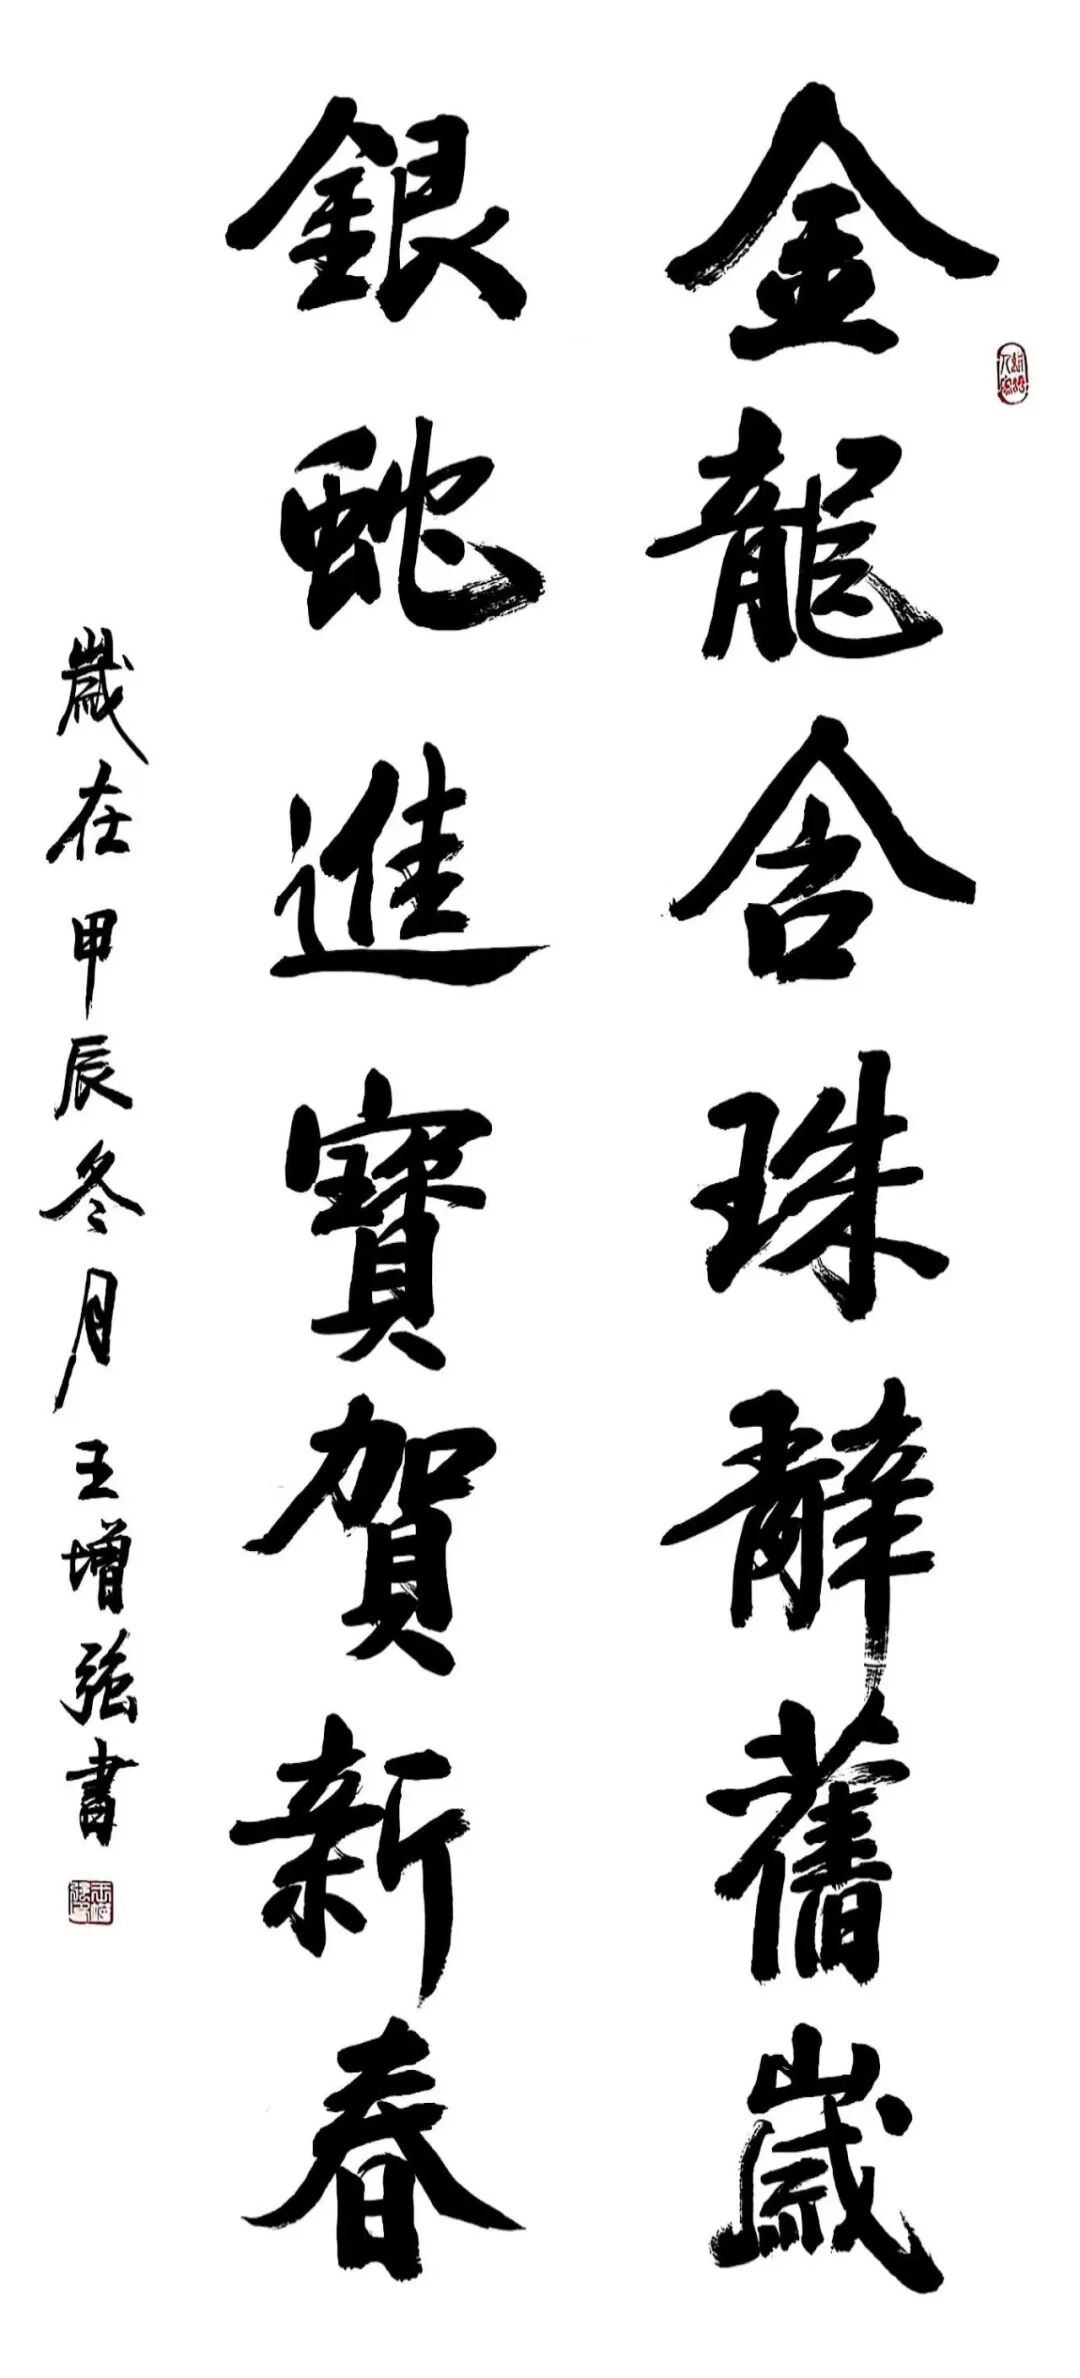 金龍含珠辭舊歲
銀蛇進寶賀新春
歲在甲辰冬月王增强書